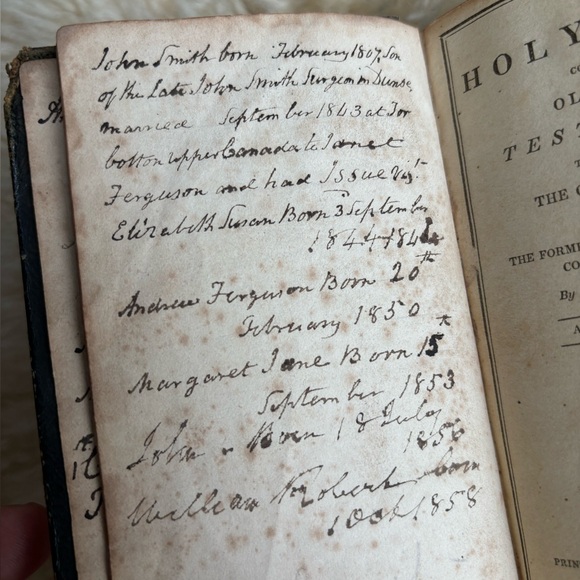 John Smith born February 1807, Son
of the Late John Smith Surgeon in Dunse,
married September 1843 at Tor
bolton upper Canada to Janet
Ferguson and had Issue Viz.t
Elizabeth Susan Born 3 September
1844 1844
Andrew Ferguson Born 20th
February 1850
Margaret Jane Born 15
September 1853
John - Born 18 July
1856
William Robert born
1 Oct 1858
HOLY
CO
OL
TES
T
THE
THE FORME
CO
By
A
PRIN